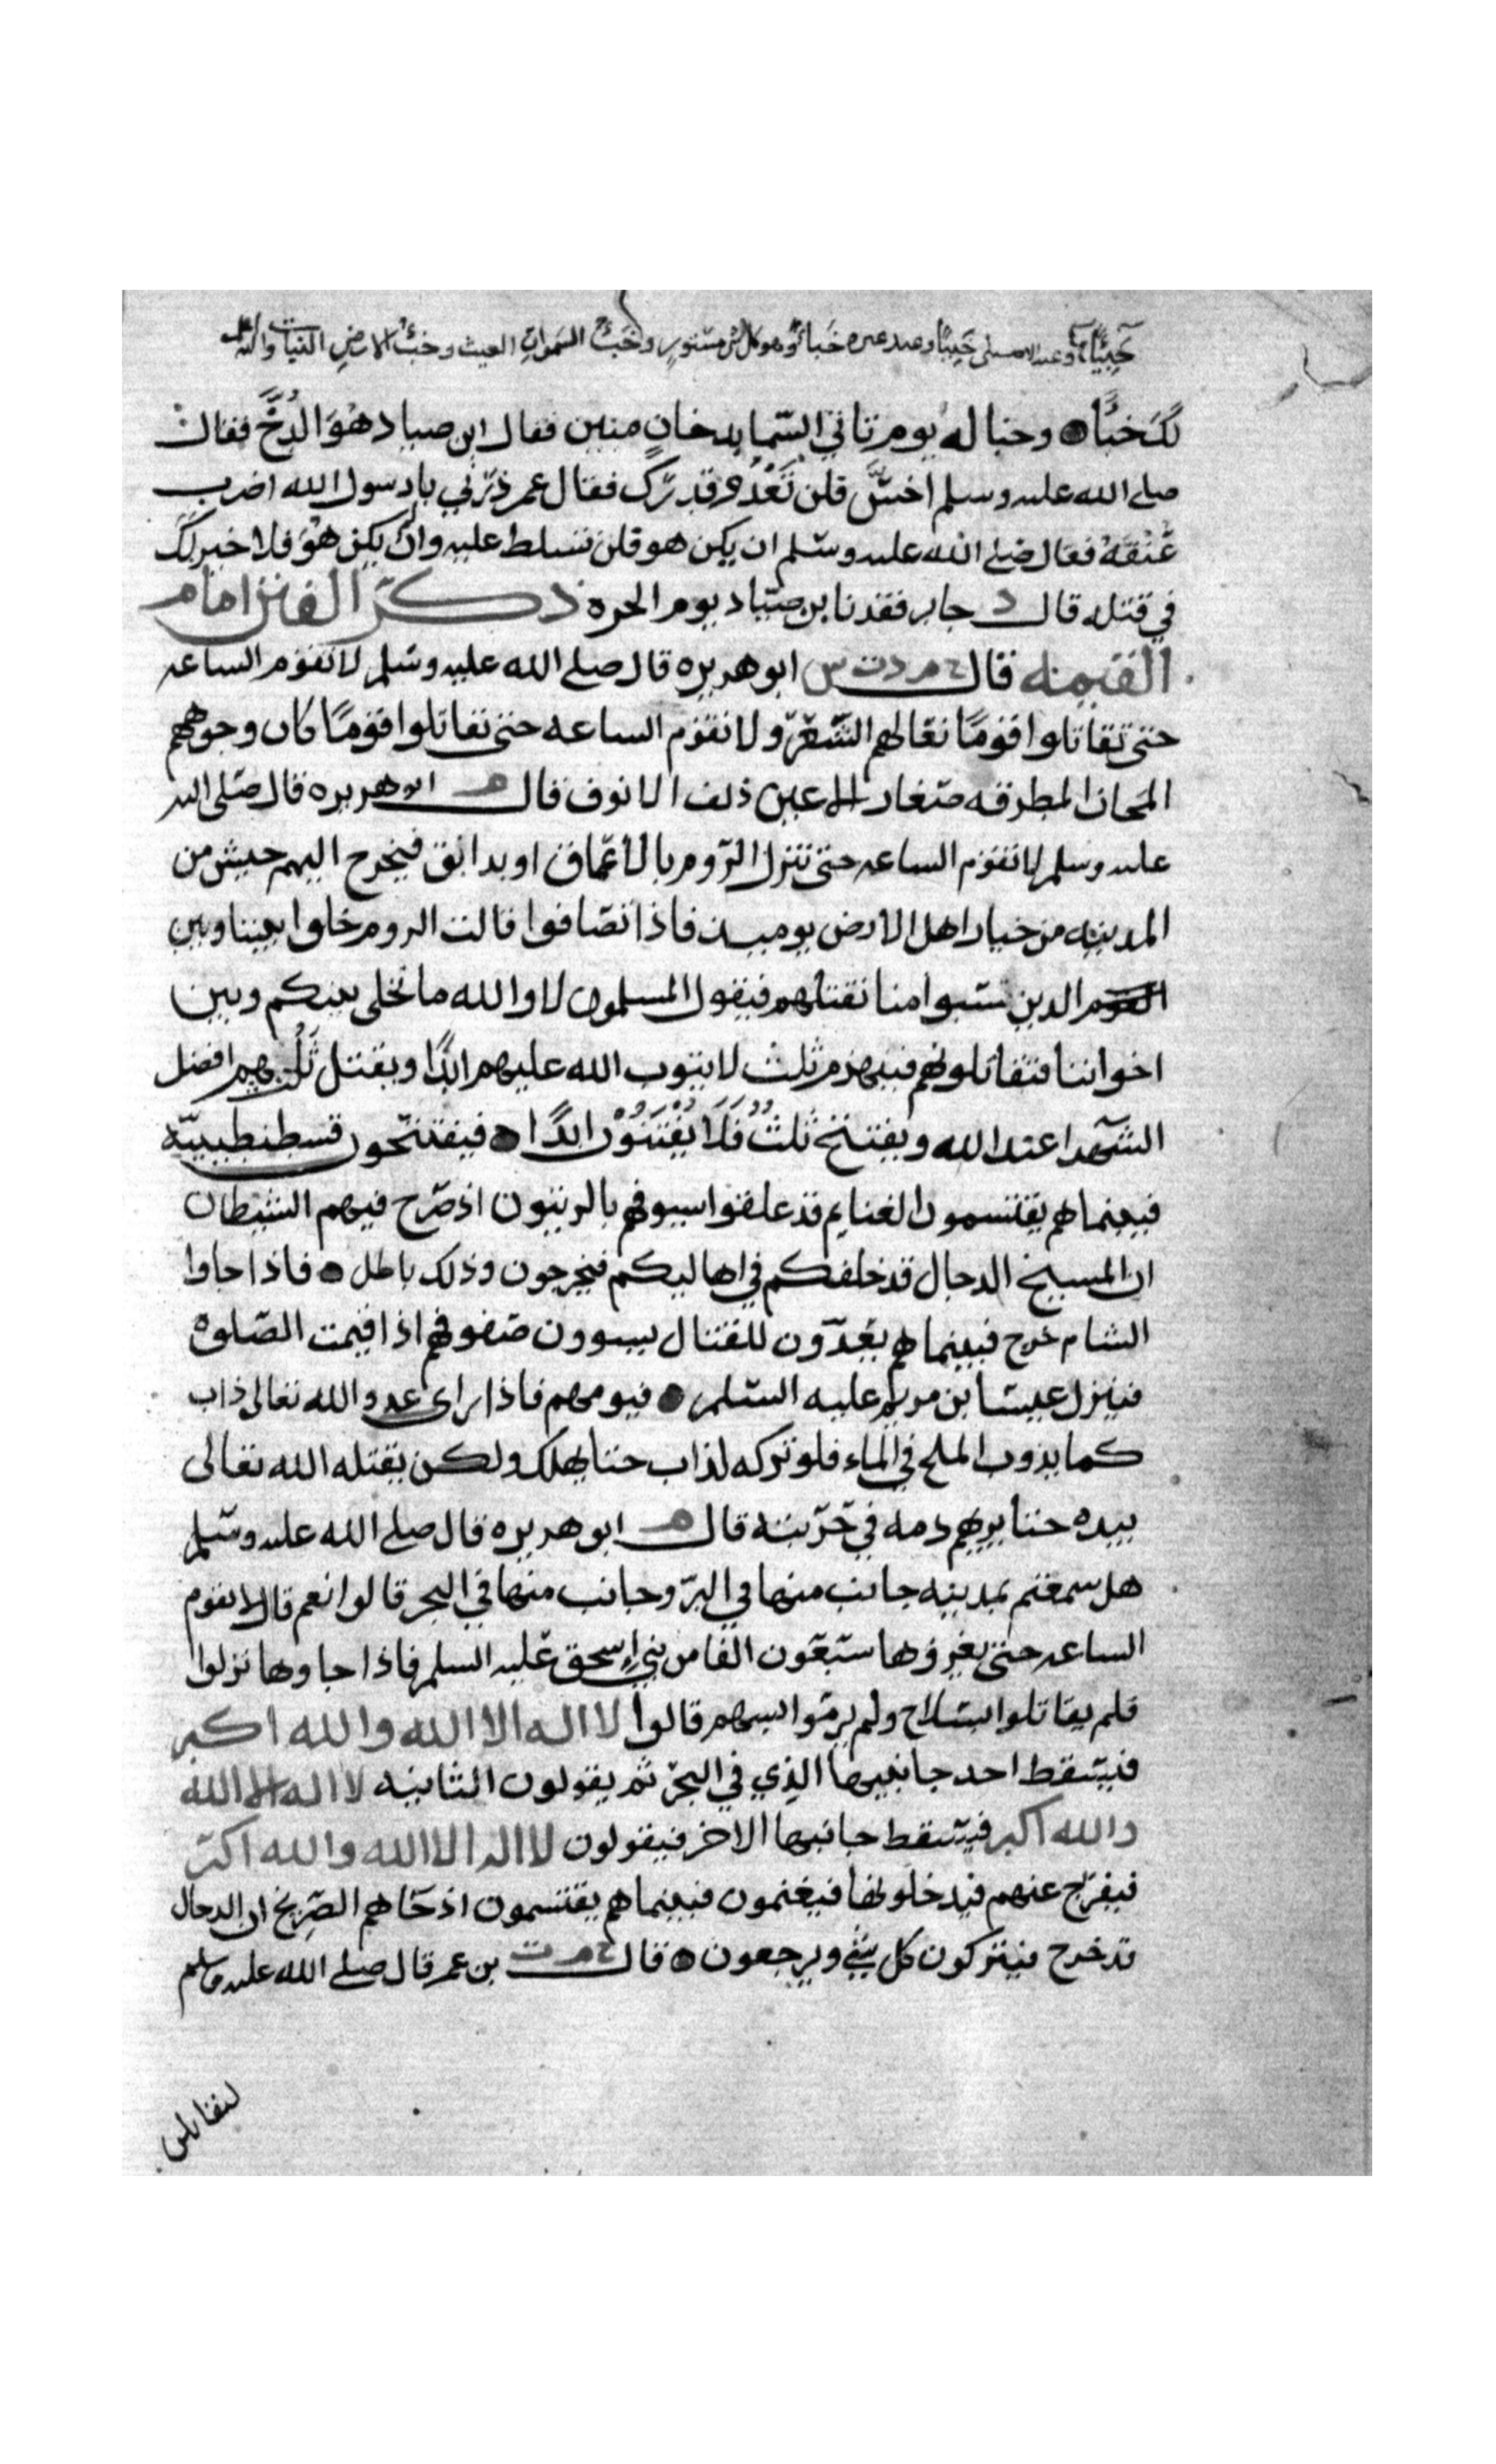 خبيًّا وعند غيره خَبأ وهو كل شي مستور وخَبْءُ السموات الغيث وخبء الارض النبات والله
لَكَ خَبْأً وخبا له يوم تاتي السّما بدخانٍ مبين فقال ابن صياد هُوَ الدُّخَّ فقال
صلى الله عليه وسلم اخسَّ فلن تَعْدُوَ قدرك فقال عمر ذَرْني يا رسول الله اضرب
عُنُقَهُ فقال صلى الله عليه وسلم ان يكن هو فلن تسلط عليه وان لم يكن هُوَ فلا خير لَكَ
في قتله قال د جابر فقدنا بن صيّاد يوم الحره ذكر الفتن امام
القيمه قال خ م د ت س ابو هريره قال صلى الله عليه وسلم لا تقوم الساعه
حتى تقاتلوا قومًا نعالهم الشّعَرُ ولا تقوم الساعه حتى تقاتلوا قومًا كان وجوههم
المجان المطرقه صغار الاعين ذلف الانوف قال م ابو هريره قال صلى الله
عليه وسلم لا تقوم الساعه حتى تنزل الروم بالاعماق او بدابق فيخرج اليهم جيش من
المدينه من خيار اهل الارض يوميذ فاذا تصافوا قالت الروم خلوا بيننا وبين
القوم الذين سبوا منا نقتلهم فيقول المسلمون لا والله ما نخلي بينكم وبين
اخواننا فتقاتلونهم فينهزم ثلث لا يتوب الله عليهم ابدًا ويقتل ثُلُثهم افضل
الشهدا عند الله ويفتتح ثلثُ فَلَا يُفْتَنُوْن ابدًا فيفتتحون قسطنطينيّه
فبينما هم يقتسمون الغنايم قد علقوا سيوفهم بالزيتون اذ صَرَخ فيهم الشيطان
ان المسيح الدجال قد خلفكم في اهاليكم فيخرجون وذلك باطل فاذا جاوا
الشام خرج فبينما هم يُعِدّون للقتال يسوون صفوفهم اذا اقيمت الصّلوة
فينزل عيسا بن مريم عليه السّلم فيومهم فاذا راى عدو الله تعالى ذاب
كما يذوب الملح في الماء فلو تركه لذاب حتا يهلك ولكن يقتله الله تعالى
بيده حتا يريهم دمه في حَرْبته قال م ابو هريره قال صلى الله عليه وسلم
هل سمعتم بمدينه جانب منها في البرّ وجانب منها في البحر قالوا نعم قال لا تقوم
الساعه حتى يغزوها سبعون الفا من بني إسحق عليه السلم فاذا جاوها نزلوا
فلم يقاتلوا بسلاح ولم يرموا بسهم قالوا لا اله الا الله والله اكبر
فيسقط احد جانبيها الذي في البحر ثم يقولون الثانيه لا اله الا الله
والله اكبر فيسقط جانبها الاخر فيقولون لا اله الا الله والله اكبر
فيفرّج عنهم فيدخلونها فيغنمون فبينما هم يقتسمون اذ جاهم الصّريخ ان الدجال
قد خرج فيتركون كل شي ويرجعون قال خ م ت بن عمر قال صلى الله عليه وسلم
لتقاتلن